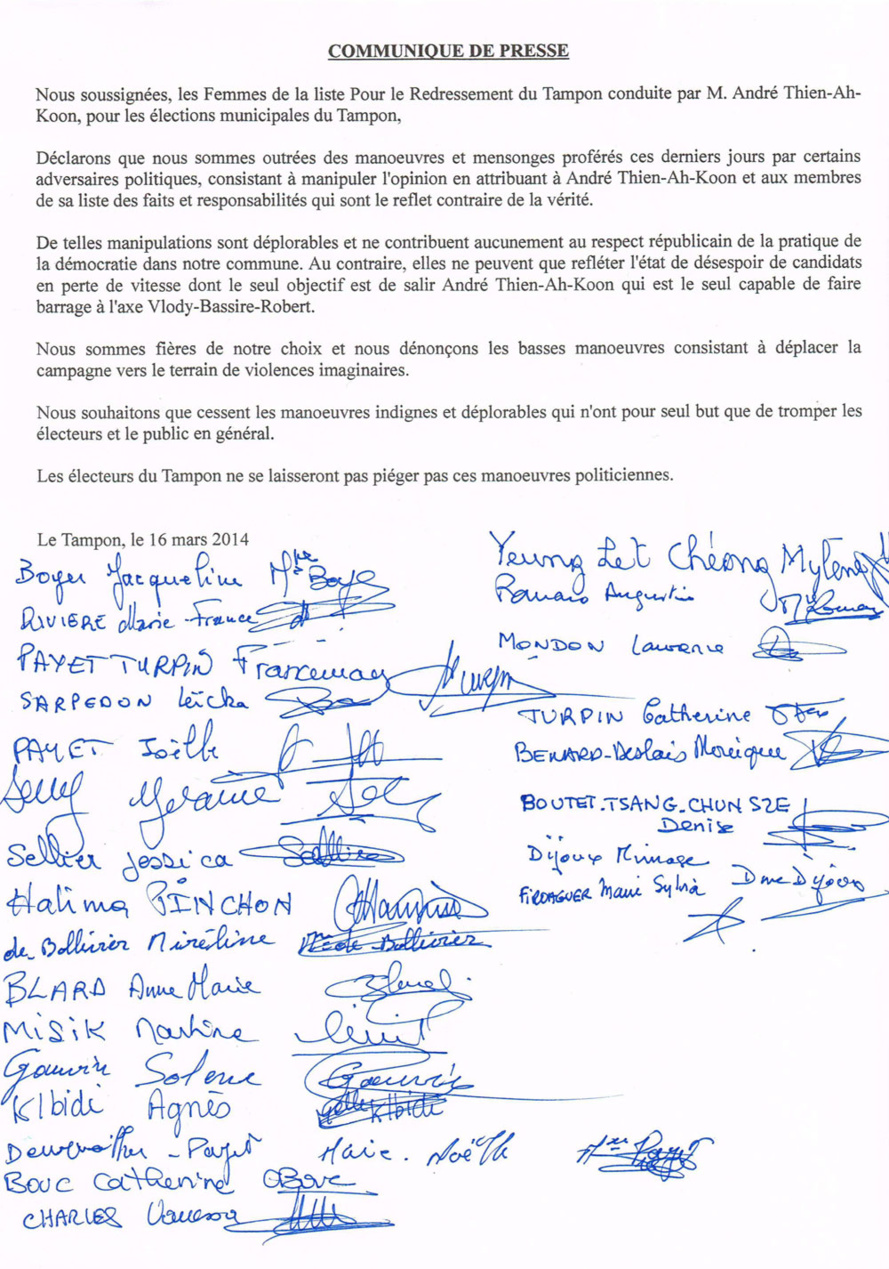 COMMUNIQUE DE PRESSE
Nous soussignées, les Femmes de la liste Pour le Redressement du Tampon conduite par M. André Thien-Ah-
Koon, pour les élections municipales du Tampon,
Déclarons que nous sommes outrées des manoeuvres et mensonges proférés ces derniers jours par certains
adversaires politiques, consistant à manipuler l'opinion en attribuant à André Thien-Ah-Koon et aux membres
de sa liste des faits et responsabilités qui sont le reflet contraire de la vérité.
De telles manipulations sont déplorables et ne contribuent aucunement au respect républicain de la pratique de
la démocratie dans notre commune. Au contraire, elles ne peuvent que refléter l'état de désespoir de candidats
en perte de vitesse dont le seul objectif est de salir André Thien-Ah-Koon qui est le seul capable de faire
barrage à l'axe Vlody-Bassire-Robert.
Nous sommes fières de notre choix et nous dénonçons les basses manoeuvres consistant à déplacer la
campagne vers le terrain de violences imaginaires.
Nous souhaitons que cessent les manoeuvres indignes et déplorables qui n'ont pour seul but que de tromper les
électeurs et le public en général.
Les électeurs du Tampon ne se laisseront pas piéger pas ces manoeuvres politiciennes.
Le Tampon, le 16 mars 2014
Boyer Jacqueline
RIVIERE Marie-France
PAYET TURPIN Francemay
SARPEDON Leïcka
PAYET Joëlle
Sellier Jessica
Halima PINCHON
de Bollivier Mireline
BLARD Anne Marie
MISIK Martine
Gauvin Solene
Klbidi Agnès
Payet Marie-Noëlle
BOUC Catherine
CHARLES Vanessa
Yeung Let Cheong Mylène
Augustine
MONDON Laurence
TURPIN Catherine
BENARD-Deslais Monique
BOUTET-TSANG-CHUN SZE
Denise
Dijoux Mimose
Sylvia